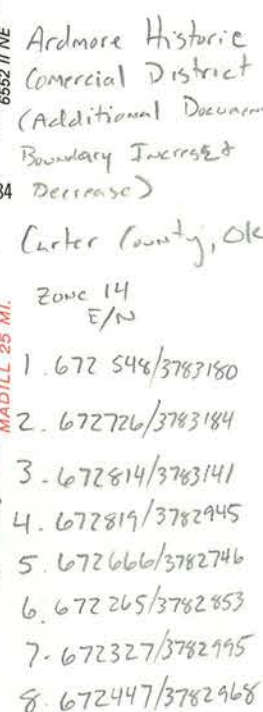 6552 II NE
Ardmore Historic
Comercial District
(Additional Documen
Boundary Increase &
34
Decrease)
Carter County, OK
Zone 14
E/N
MADILL 25 MI.
1. 672 548/3783180
2. 672726/3783184
3. 672814/3783141
4. 672819/3782945
5. 672666/3782746
6. 672265/3782853
7. 672327/3782995
8. 672447/3782968